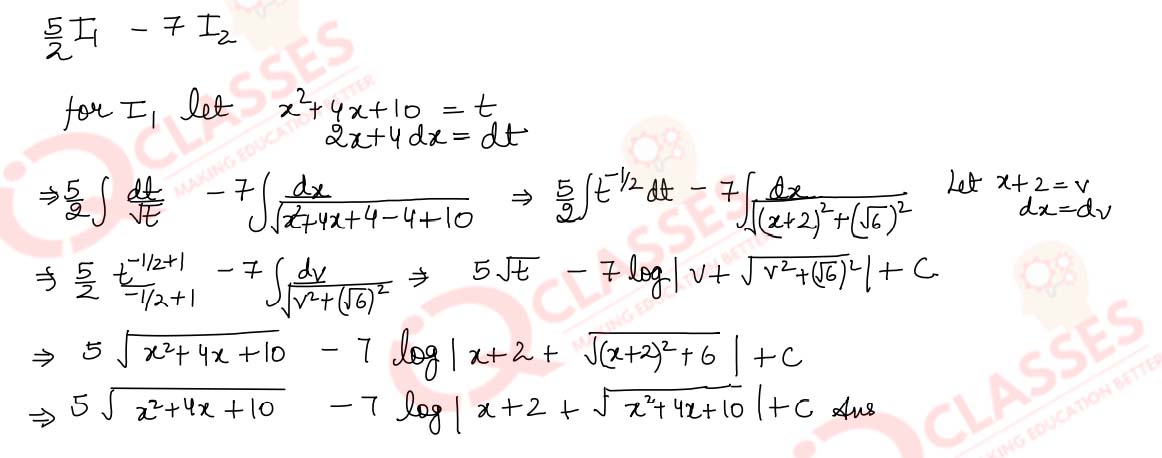 5/2 I₁ − 7 I₂
for I₁ let x²+4x+10 = t
2x+4 dx = dt
⇒ 5/2 ∫ dt/√t − 7∫ dx/√(x²+4x+4−4+10) ⇒ 5/2 ∫ t^(-1/2) dt − 7∫ dx/√((x+2)²+(√6)²) Let x+2 = v
dx = dv
⇒ 5/2 t^(-1/2+1)/(-1/2+1) − 7∫ dv/√(v²+(√6)²) ⇒ 5√t − 7 log| v + √(v²+(√6)²) | + C
⇒ 5 √(x²+4x+10) − 7 log| x+2 + √((x+2)²+6) | + C
⇒ 5 √(x²+4x+10) − 7 log| x+2 + √(x²+4x+10) | + C Ans
CLASSES
MAKING EDUCATION BETTER
CLASSES
MAKING EDUCATION BETTER
CLASSES
MAKING EDUCATION BETTER